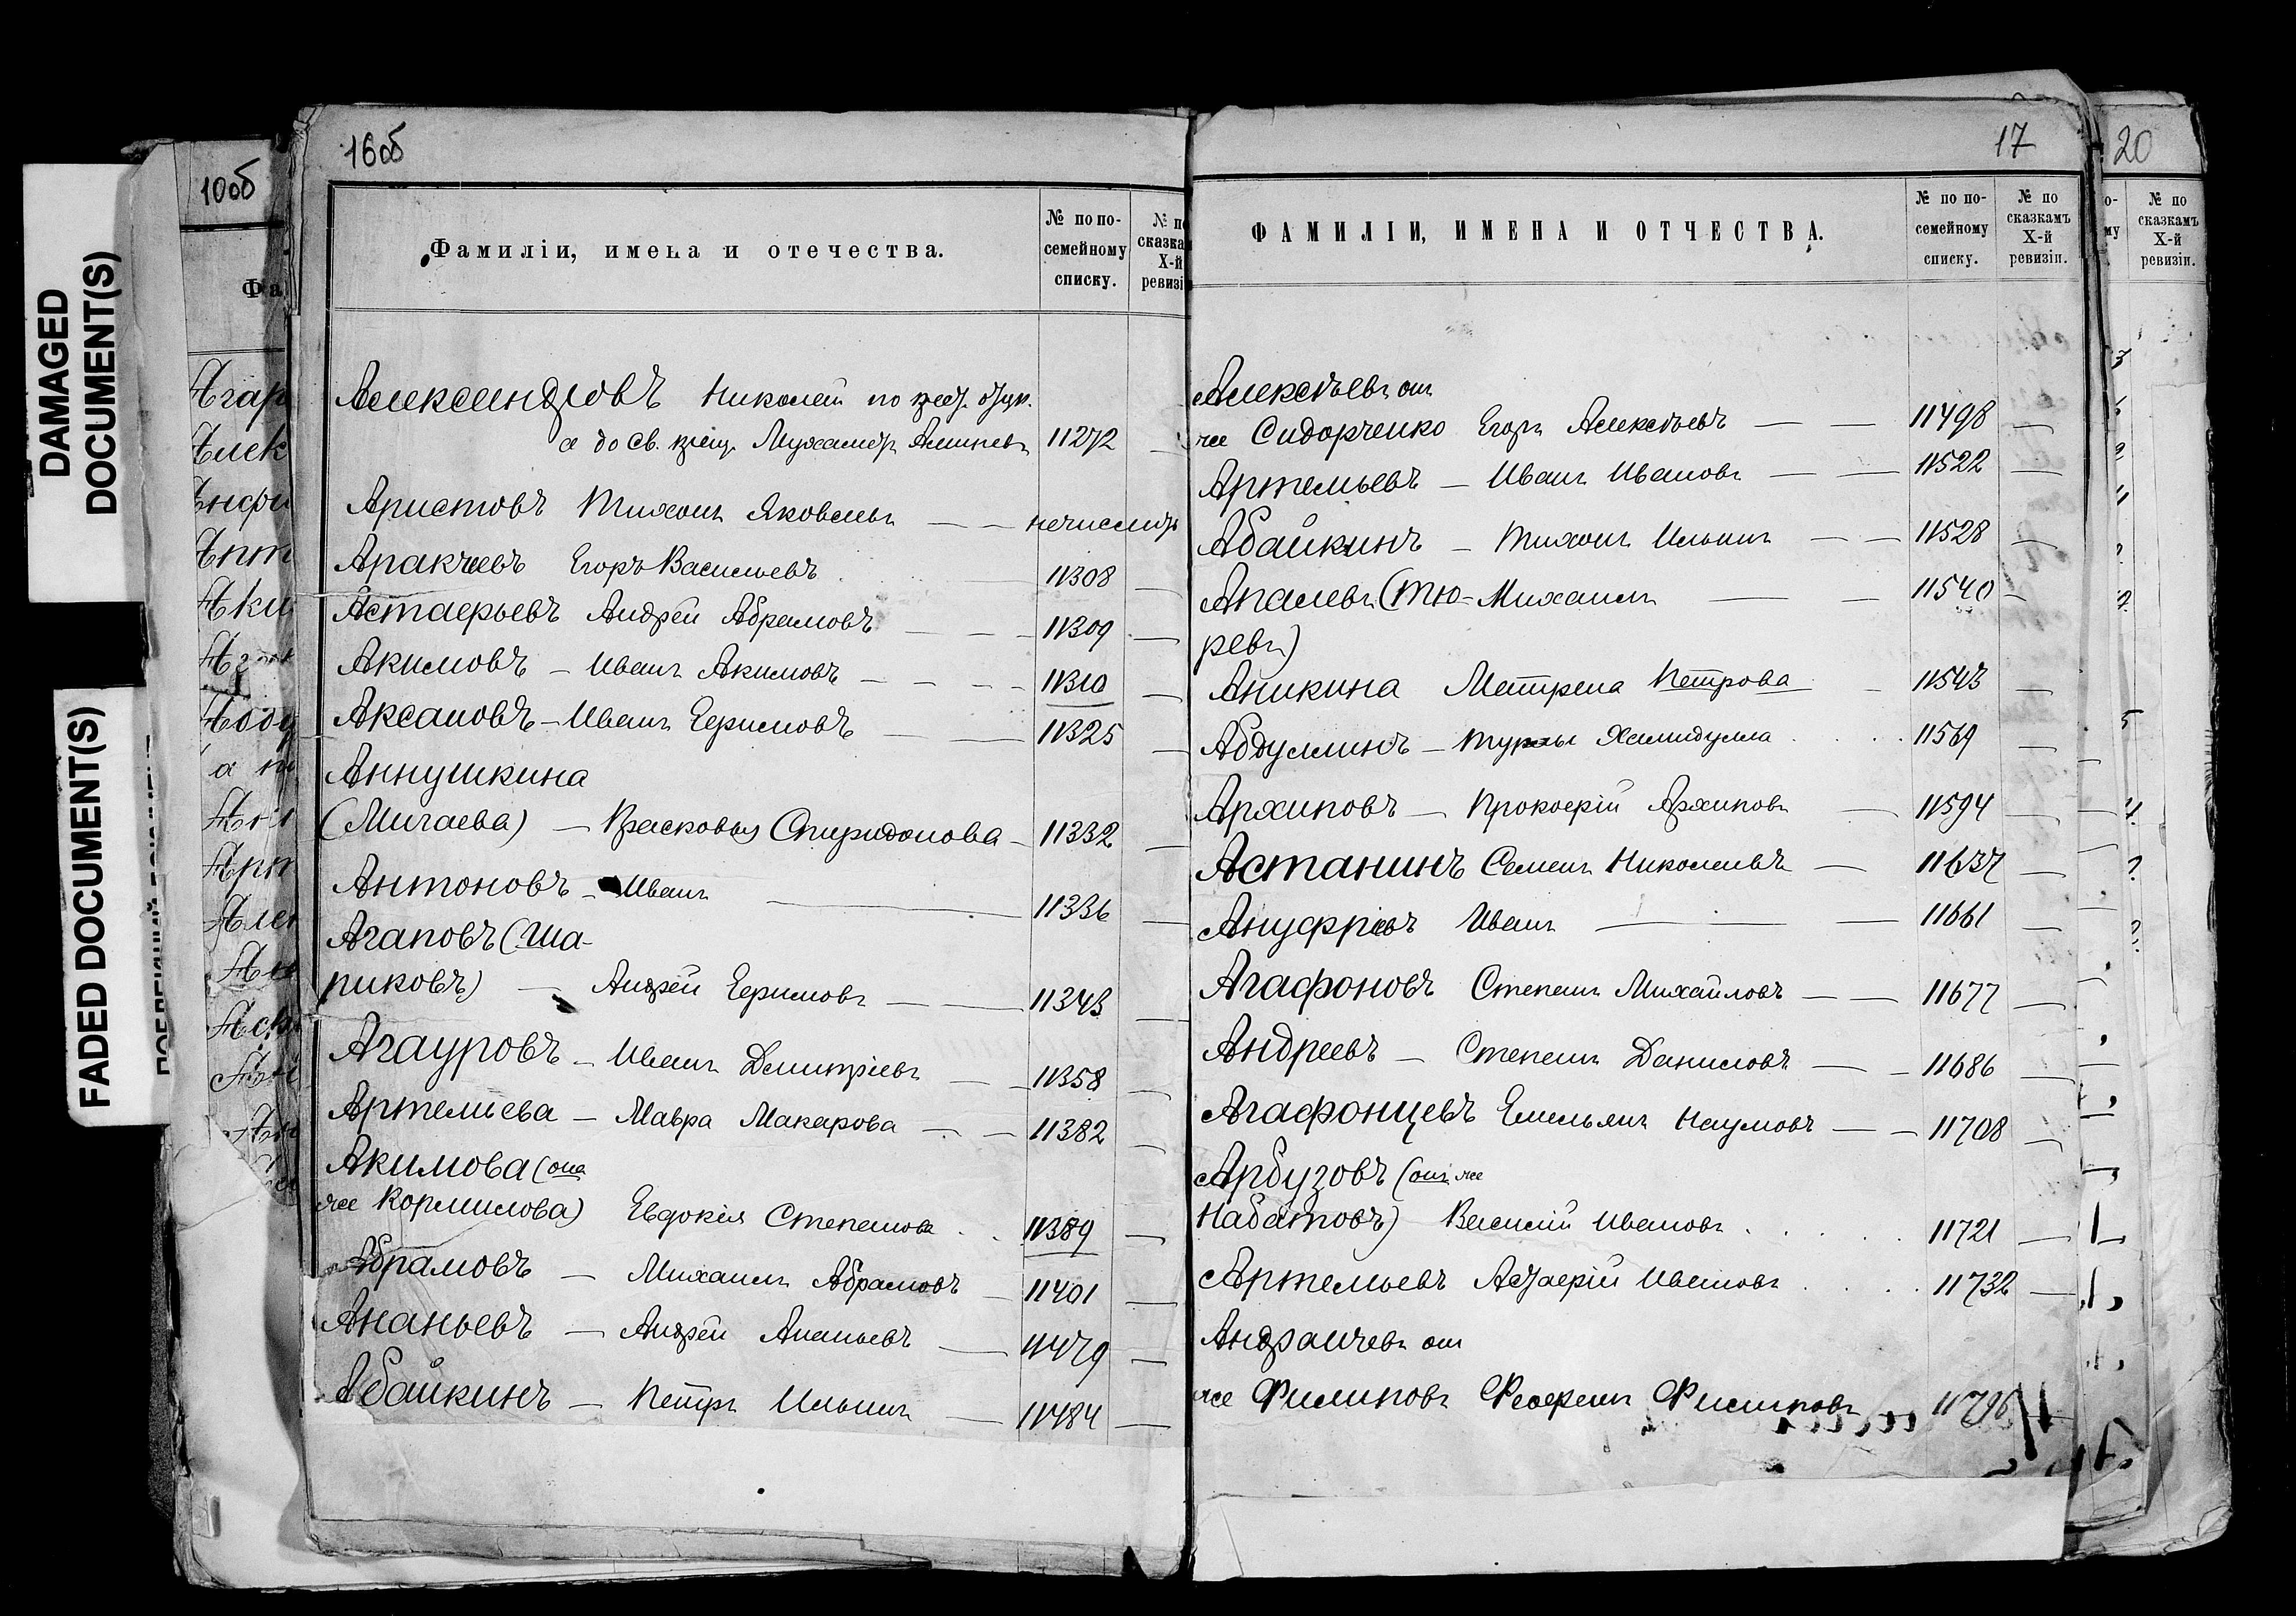 DAMAGED
DOCUMENT(S)
FADED DOCUMENT(S)
10об
Фа
Агар
Алек
16об
Фамиліи, имена и отечества.
№ по по-
семейному
списку.
№ по
сказка
X-й
ревизі
Александровъ Николай по
а до св. крещ. 11272
Аристовъ Тихонъ Яковлевъ — —
Аракчеевъ Егоръ Васильевъ 11308 —
Астафьевъ Андрей Абрамовъ — — — 11309 —
Акимовъ — Иванъ Акимовъ — — — — 11310 —
Аксановъ — Иванъ Ефимовъ — — 11325 —
Аннушкина
(Мигаева) — Прасковья Спиридонова — 11332 —
Антоновъ — Иванъ — 11336 —
Агаповъ (Ша-
риковъ) — Андрей Ефимовъ — — 11343 —
Агауровъ — Иванъ Дмитріевъ — — 11358 —
Артемьева — Мавра Макарова — — 11382 —
Акимова (она
же Кормилова) Евдокія Степанова . . 11389 —
Абрамовъ — Михаилъ Абрамовъ — 11401 —
Ананьевъ — Андрей Ананьевъ — 11479 —
Абайкинъ — Петръ Ильинъ — 11484 —
17
ФАМИЛІИ, ИМЕНА И ОТЧЕСТВА.
№ по по-
семейному
списку.
№ по
сказкамъ
X-й
ревизіи.
Алексѣевъ онъ
же Сидорченко Егоръ Алексѣевъ — — 11498 —
Артемьевъ — Иванъ Ивановъ — — 11522 —
Абайкинъ — Тихонъ Ильинъ — — 11528 —
Апалевъ (Тю- Михаилъ — — 11540 —
ревъ)
Аникина Матрена Петрова — 11543 —
Абдуллинъ — Хамидулла . . . 11569 —
Архиповъ — Прокофій Архиповъ — 11594 —
Астанинъ Семенъ Николаевъ — 11637 —
Ануфріевъ Иванъ — — — 11661 —
Агафоновъ Степанъ Михайловъ — — 11677 —
Андреевъ — Степанъ Даниловъ — — 11686 —
Агафонцевъ Емельянъ Наумовъ — — 11708 —
Арбузовъ (онъ же
Набатовъ) Василій Ивановъ . . . . . 11721 —
Артемьевъ Ивановъ . . . 11732 —
онъ
же Филиповъ Филиповъ
20
№ по
сказкамъ
X-й
ревизіи.